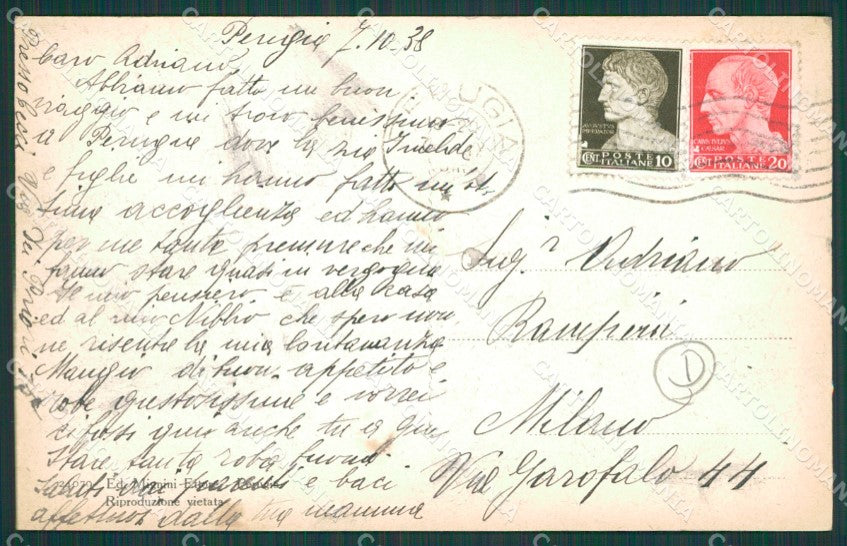 Perugia 7.10.38
Caro Adriano,
Abbiamo fatto un buon
viaggio e mi trovo benissimo
a Perugia dove la zia Imelde
e figlie mi hanno fatto un'ot
tima accoglienza ed hanno
per me tante premure che mi
fanno stare quasi in vergogna
Il mio pensiero è alla casa
ed al mio Nibbio che spero non
ne risenta la mia lontananza
Mangio di buon appetito e
robe gustosissime e vorrei
ci fossi qui anche tu a gus
tare tanta roba buona
Saluti e baci
affettuosi dalla tua mamma
Presso Cecchi Via dei Priori
PERUGIA
AUGUSTUS
IMPERATOR
CENT. POSTE ITALIANE 10
CAIUS IULIUS
CAESAR
CENT. POSTE ITALIANE 20
Ing.r Adriano
Ramperini
D
Milano
Via Garofalo 44
Ed. Mignini
Riproduzione vietata
CARTOLINOMANIA